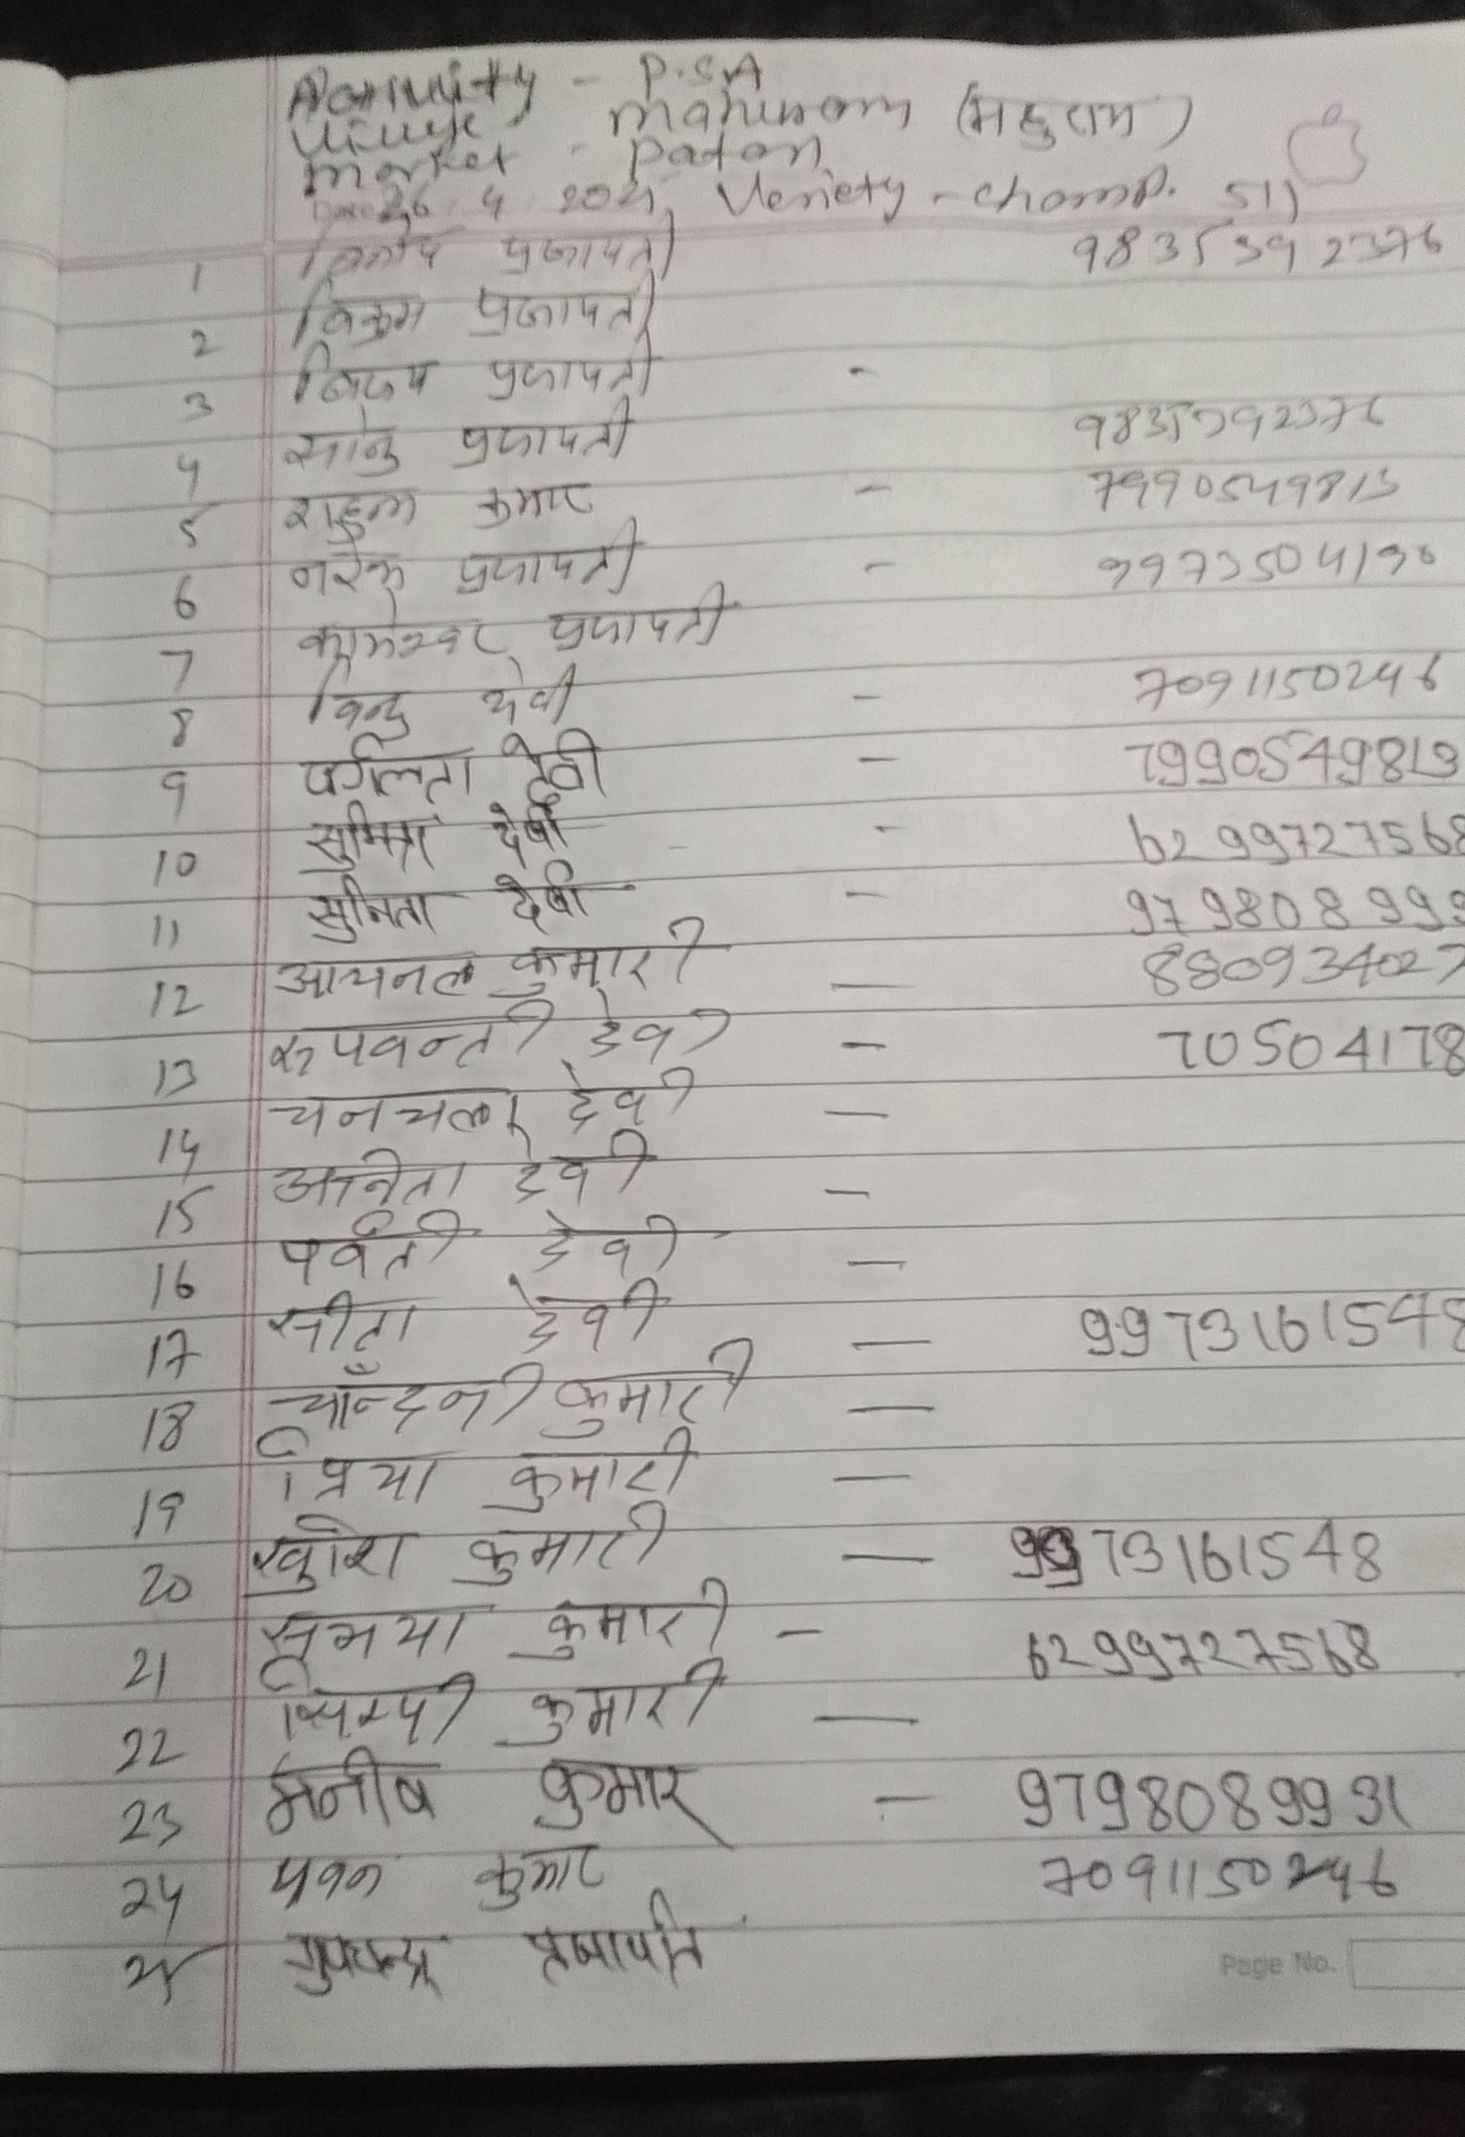 Activity - P.S.A
Village - Mahuram (महुराम)
Market - Patan
Date 26 4 2021 Veriety - Champ. 511
1 विनोद प्रजापती 9835392376
2 विक्रम प्रजापती
3 विजय प्रजापती -
4 सोनु प्रजापती 9835392376
5 राहुल कुमार - 7990549813
6 नरेश प्रजापती - 9973504198
7 कामेश्वर प्रजापती
8 विन्दु देवी - 7091150246
9 देवी - 7990549813
10 सुमित्रा देवी - 6299727568
11 सुनिता देवी - 979808999
12 आयनल कुमारी — 880934027
13 रुपवन्ती देवी - 70504178
14 चनचला देवी —
15 अनिता देवी —
16 पर्वती देवी —
17 सीता देवी — 9973161548
18 चाँन्दनी कुमारी —
19 प्रिया कुमारी —
20 खुशि कुमारी — 9973161548
21 कुमारी - 6299727568
22 सिम्पी कुमारी —
23 मनीष कुमार - 9798089931
24 पवन कुमार 7091150246
25 प्रजापति
Page No.